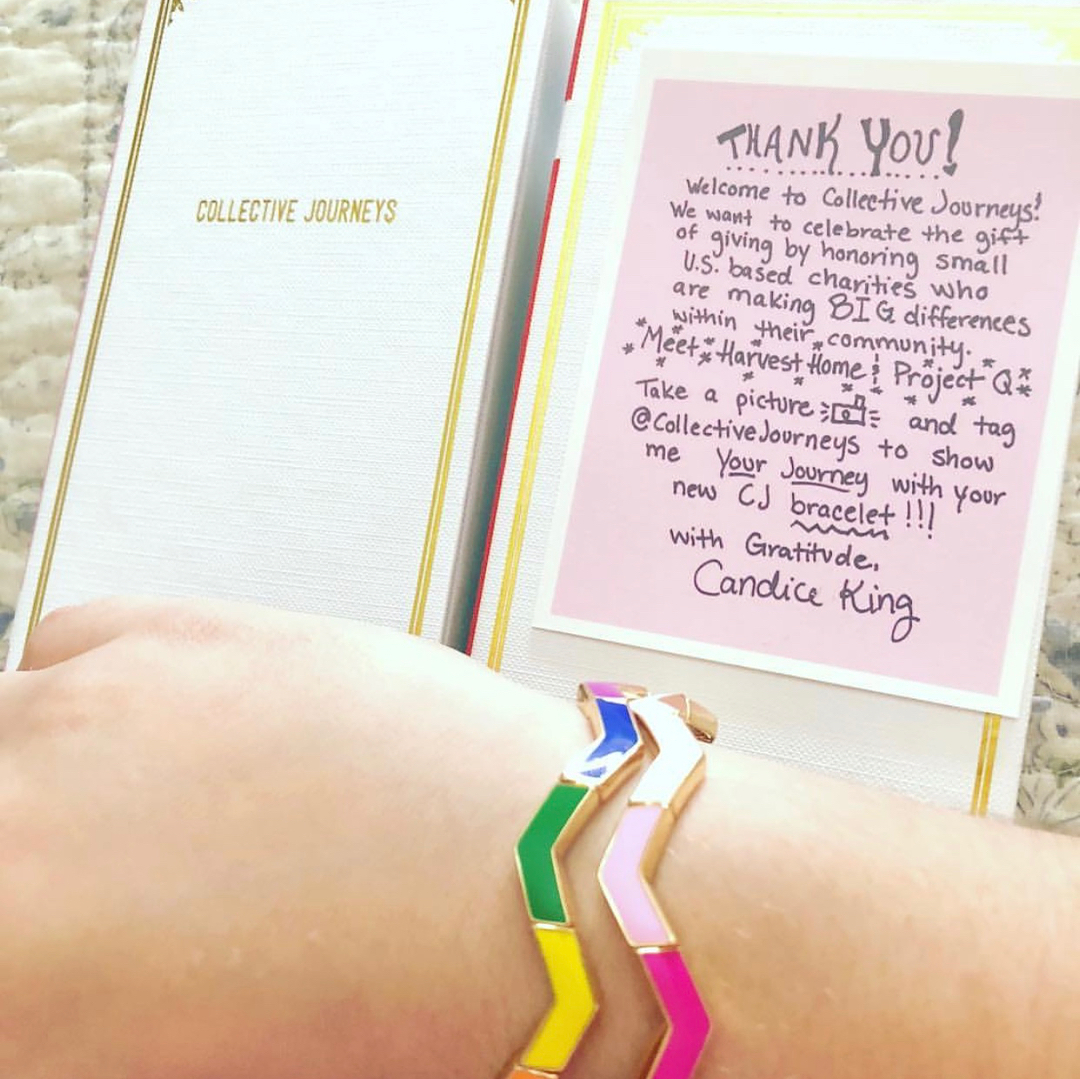 COLLECTIVE JOURNEYS
THANK YOU!
Welcome to Collective Journeys!
We want to celebrate the gift
of giving by honoring small
U.S. based charities who
are making BIG differences
within their community.
*Meet* Harvest Home & Project Q*
Take a picture and tag
@CollectiveJourneys to show
me Your Journey with your
new CJ bracelet!!!
with Gratitude,
Candice King